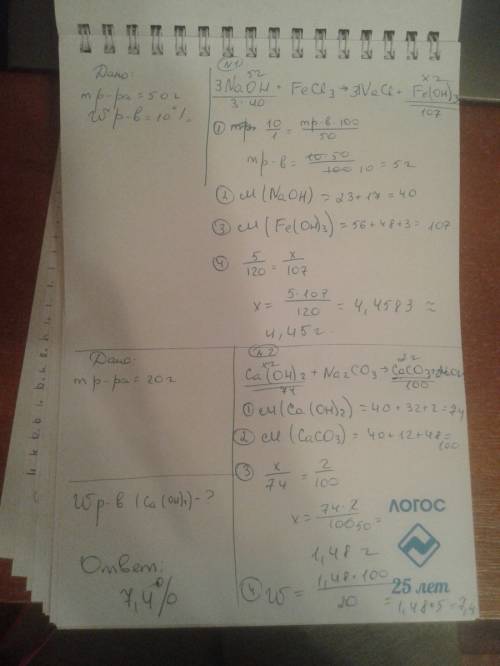 Дано:
mр-ра = 50 г
Wр-в = 10%
№1
5г
x г
3NaOH + FeCl3 → 3NaCl + Fe(OH)3
3·40
107
① 10/1 = mр-в·100/50
mр-в = 10·50/100 10 = 5г
② M(NaOH) = 23+17 = 40
③ M(Fe(OH)3) = 56+48+3 = 107
④ 5/120 = x/107
x = 5·107/120 = 4,4583 ≈
4,45г
Дано:
mр-ра = 20 г
Wр-в (Ca(OH)2) - ?
Ответ:
7,4%
№2
x г
2г
Ca(OH)2 + Na2CO3 → CaCO3 +
74
100
① M(Ca(OH)2) = 40+32+2 = 74
② M(CaCO3) = 40+12+48 =
100
③ x/74 = 2/100
x = 74·2/100 50 =
1,48 г
④ W = 1,48·100/20 = 1,48·5 = 7,4
ЛОГОС
25 лет